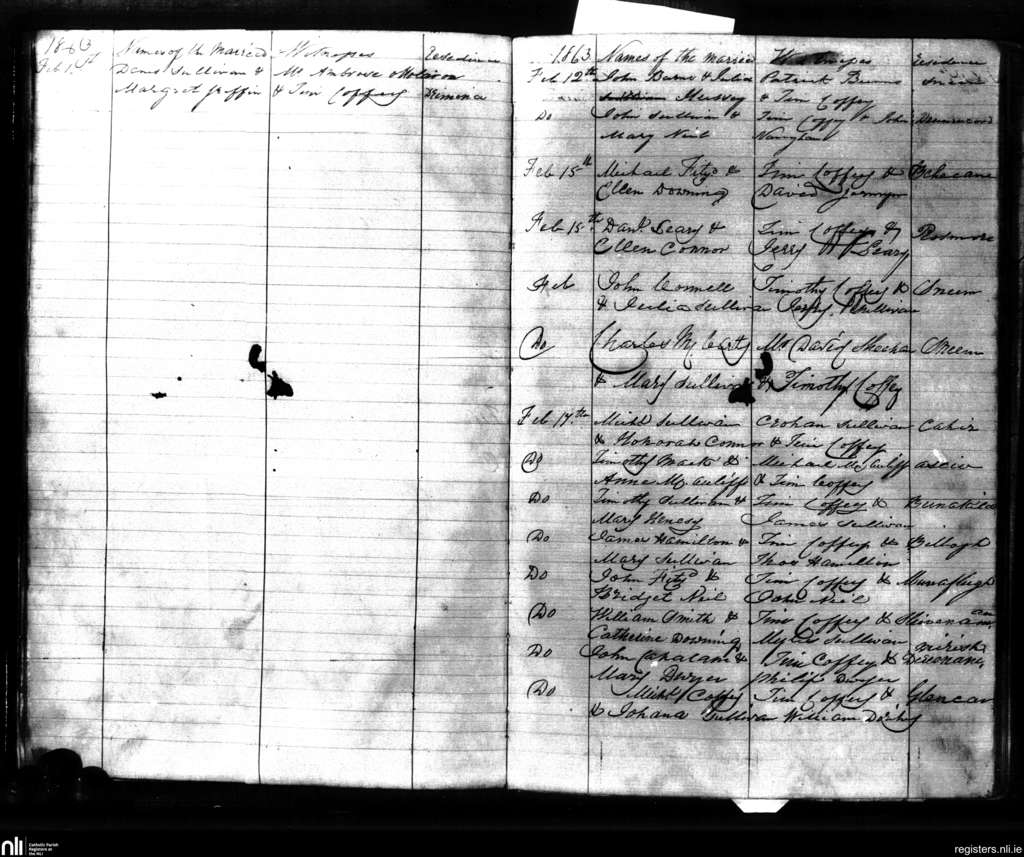 1863 Names of the Married Witnesses Residence
Feb 1st Denis Sullivan & Mr Ambrose
Margret Griffin & Tim Coffey
1863 Names of the married Witnesses Residence
Feb 12th John Burns & Julia Patrick Burns Sneem
& Tim Coffey
Do John Sullivan & Tim Coffey & John
Mary Neil
Feb 15th Michael Fitzd & Tim Coffey &
Ellen Downing David
Feb 15th Danl Leary & Tim Coffey & Rosmore
Ellen Connor Jerry Leary
Feb John Connell Timothy Coffey & Sneem
& Julia Sullivan Sullivan
Do Charles Mc Carty Mr David Sheehan Sneem
& Mary Sullivan & Timothy Coffey
Feb 17th Michl Sullivan Crohan Sullivan Cahir
& Honorah Connor & Tim Coffey
Do Timothy & Michael McAuliff
Anne McAuliff & Tim Coffey
Do Timothy Sullivan & Tim Coffey &
Mary James Sullivan
Do James Hamilton & Tim Coffey &
Mary Sullivan Thos Hamilton
Do John Fitzd & Tim Coffey &
Bridget Neil John Neil
Do William Smith & Tim Coffey &
Catherine Downing Sullivan
Do John & Tim Coffey &
Mary Dwyer Philip Dwyer
Do Michl Coffey Tim Coffey & Glencar
& Johana Sullivan William
nli
Catholic Parish
Registers at
the NLI
registers.nli.ie